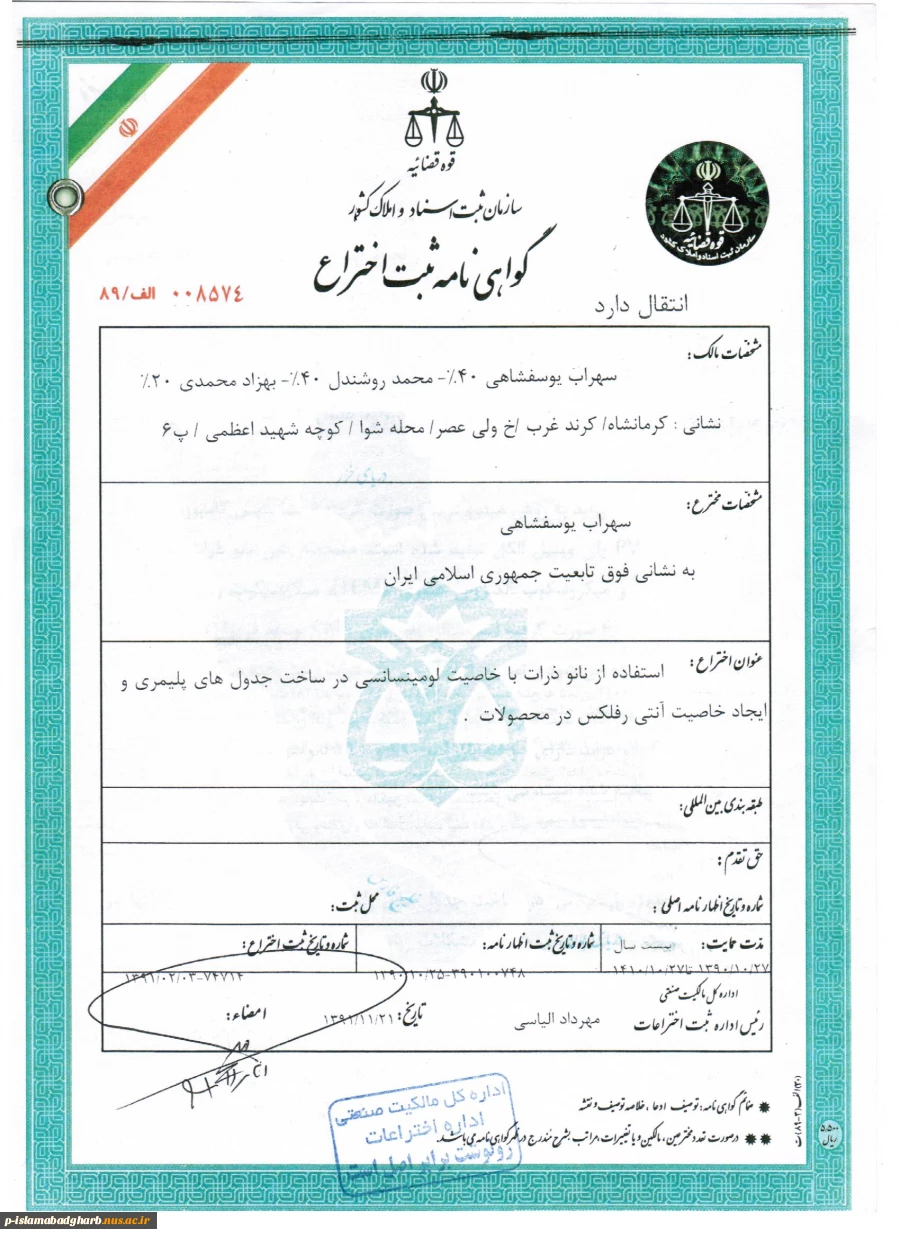 قوه قضائیه
سازمان ثبت اسناد و املاک کشور
گواهی نامه ثبت اختراع
قوه قضائیه
سازمان ثبت اسناد و املاک کشور
۰۰۸۵۷۴ الف/۸۹
انتقال دارد
مشخصات مالک:
سهراب یوسفشاهی ۴۰٪- محمد روشندل ۴۰٪- بهزاد محمدی ۲۰٪
نشانی : کرمانشاه/ کرند غرب /خ ولی عصر/ محله شوا / کوچه شهید اعظمی / پ۶
مشخصات مخترع:
سهراب یوسفشاهی
به نشانی فوق تابعیت جمهوری اسلامی ایران
عنوان اختراع:
استفاده از نانو ذرات با خاصیت لومینسانسی در ساخت جدول های پلیمری و
ایجاد خاصیت آنتی رفلکس در محصولات .
طبقه بندی بین المللی:
حق تقدم:
شماره و تاریخ اظهار نامه اصلی: محل ثبت:
مدت حمایت: بیست سال شماره و تاریخ ثبت اظهار نامه: شماره و تاریخ ثبت اختراع:
۱۳۹۰/۱۰/۲۷ تا ۱۴۱۰/۱۰/۲۷ ۱۳۹۰/۱۰/۲۵-۳۹۰۱۰۰۷۴۸ ۱۳۹۱/۰۲/۰۳-۷۴۷۱۴
اداره کل مالکیت صنعتی
رئیس اداره ثبت اختراعات مهرداد الیاسی تاریخ: ۱۳۹۱/۱۱/۲۱ امضاء:
ضمائم گواهی نامه: توصیف، ادعا، خلاصه توصیف و نقشه
درصورت تعدد مخترعین، مالکین و یا تغییرات، مراتب بشرح مندرج در ظهر گواهی نامه می باشد.
اداره کل مالکیت صنعتی
اداره اختراعات
رونوشت برابر اصل است
۵۵۰۰ ریال
p-islamabadgharb.nus.ac.ir